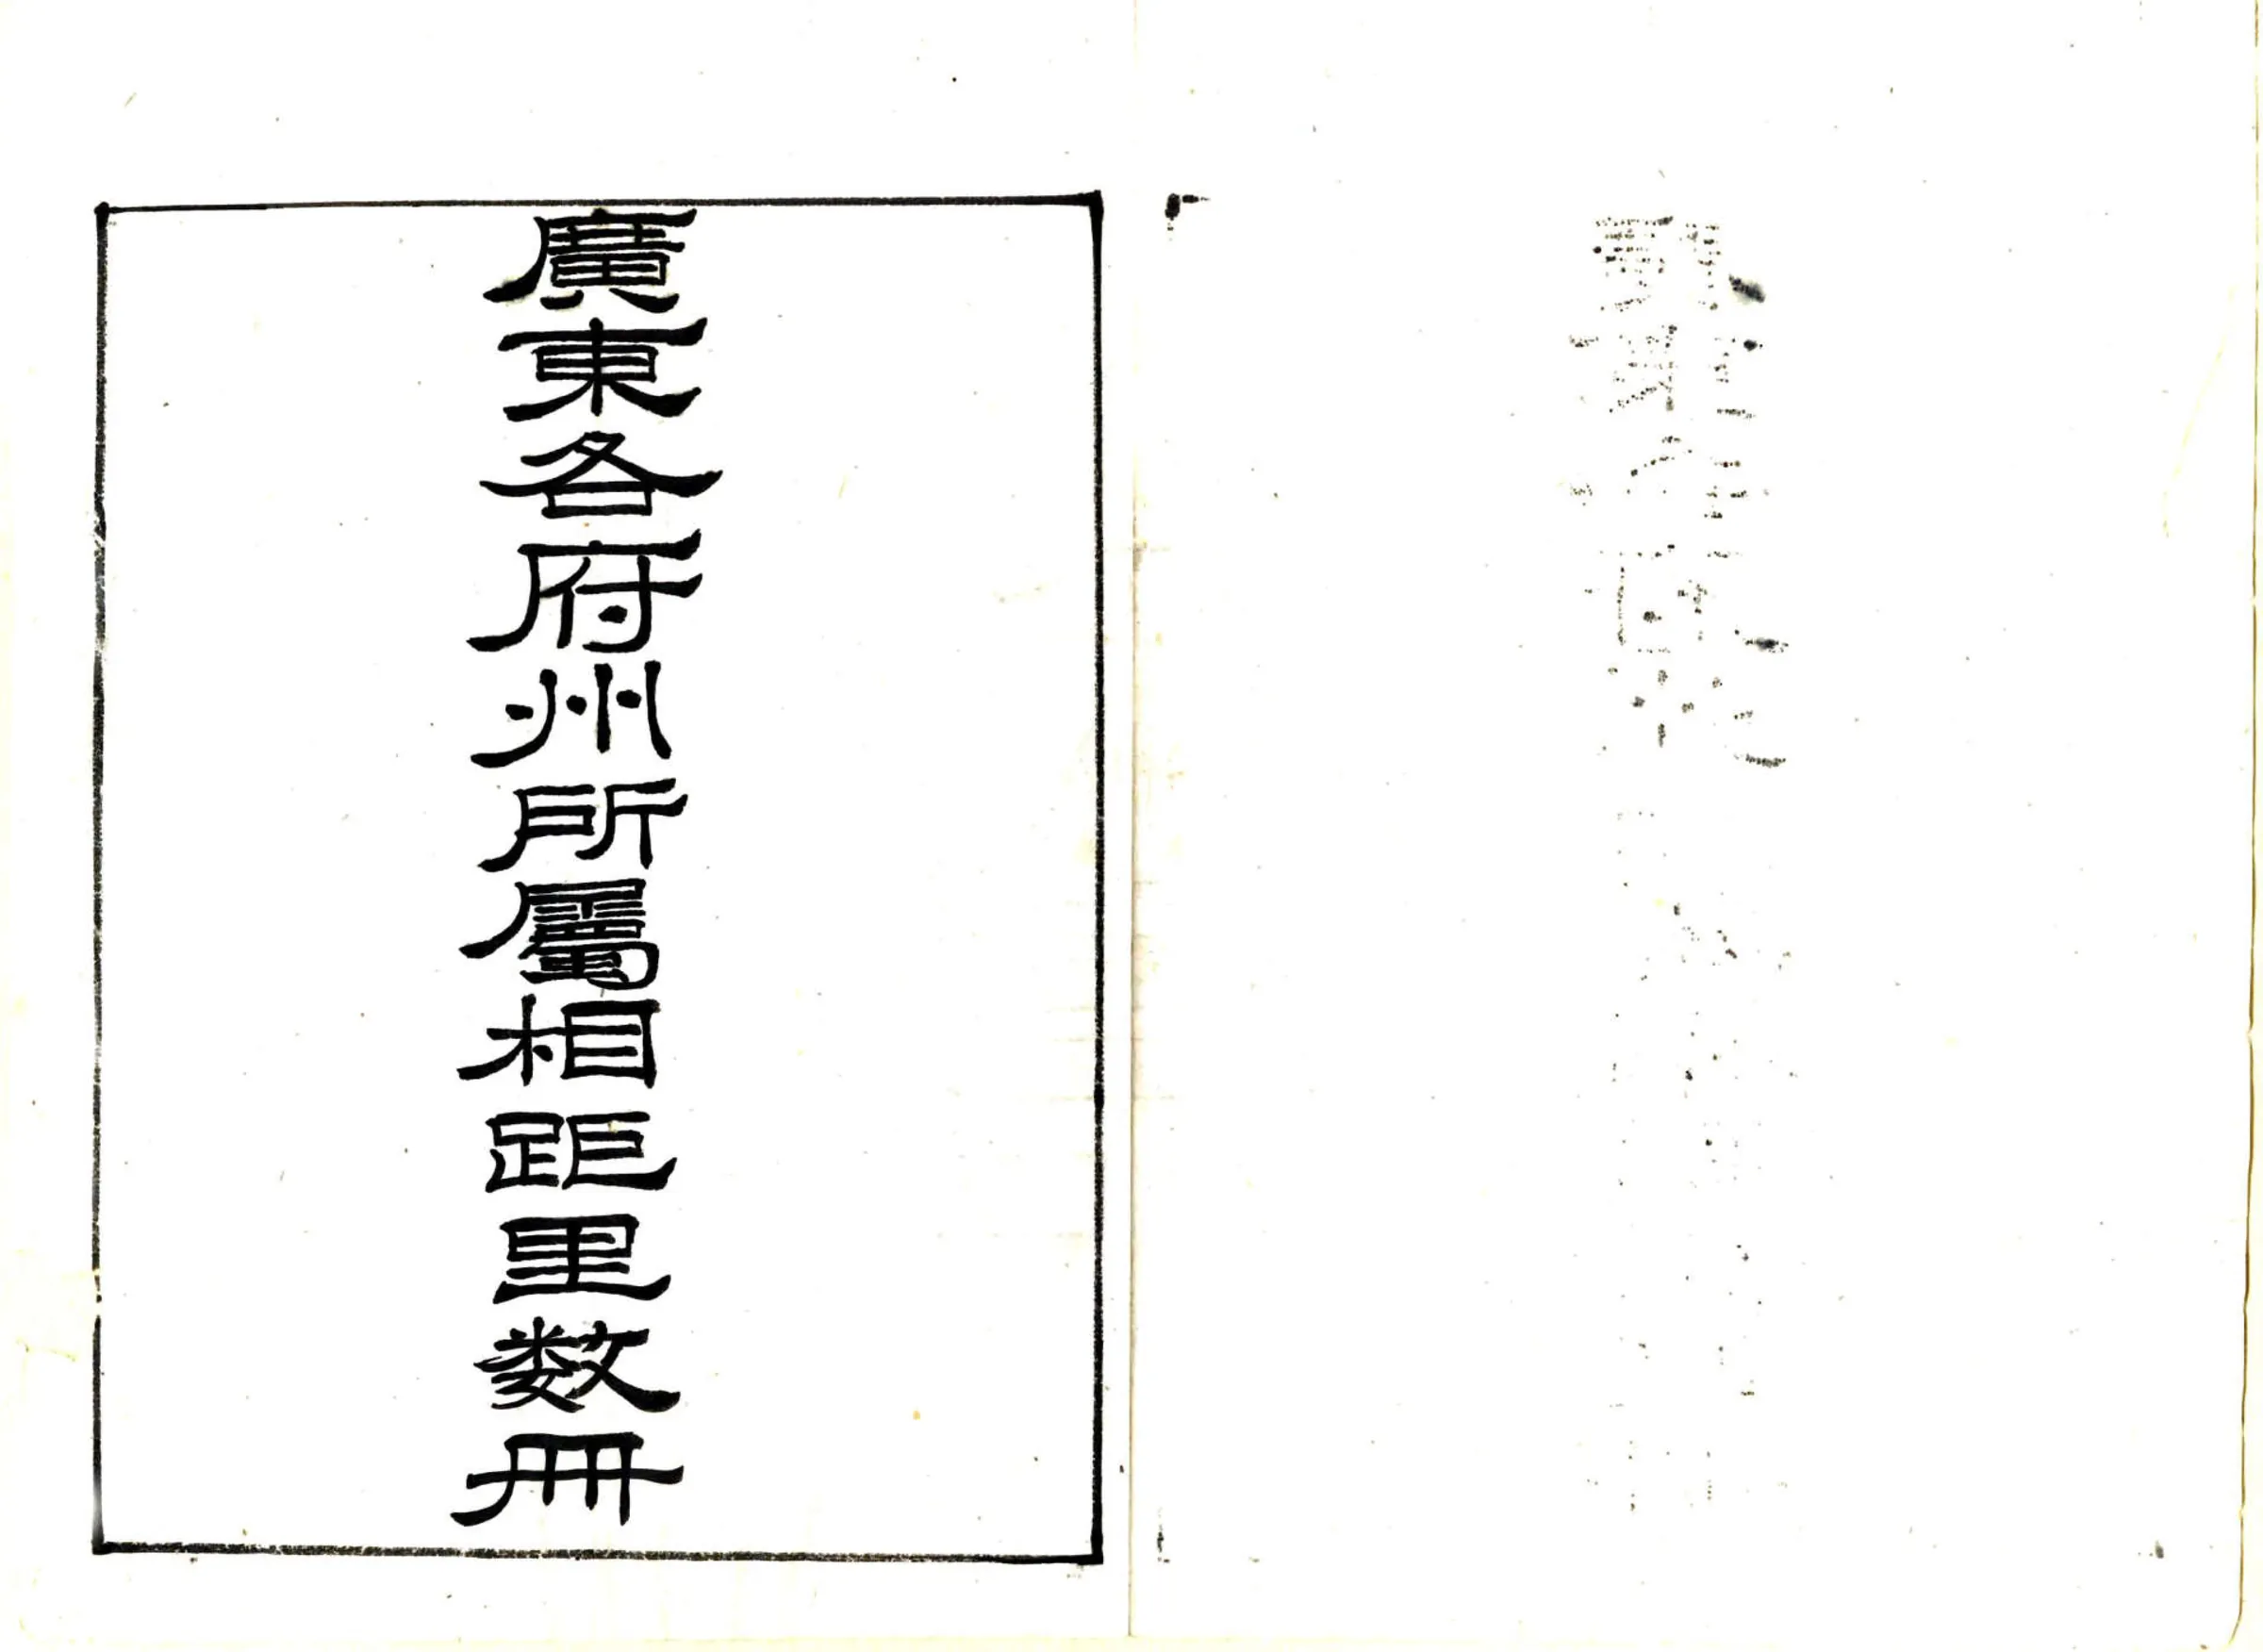 廣東各府州所屬相距里数冊